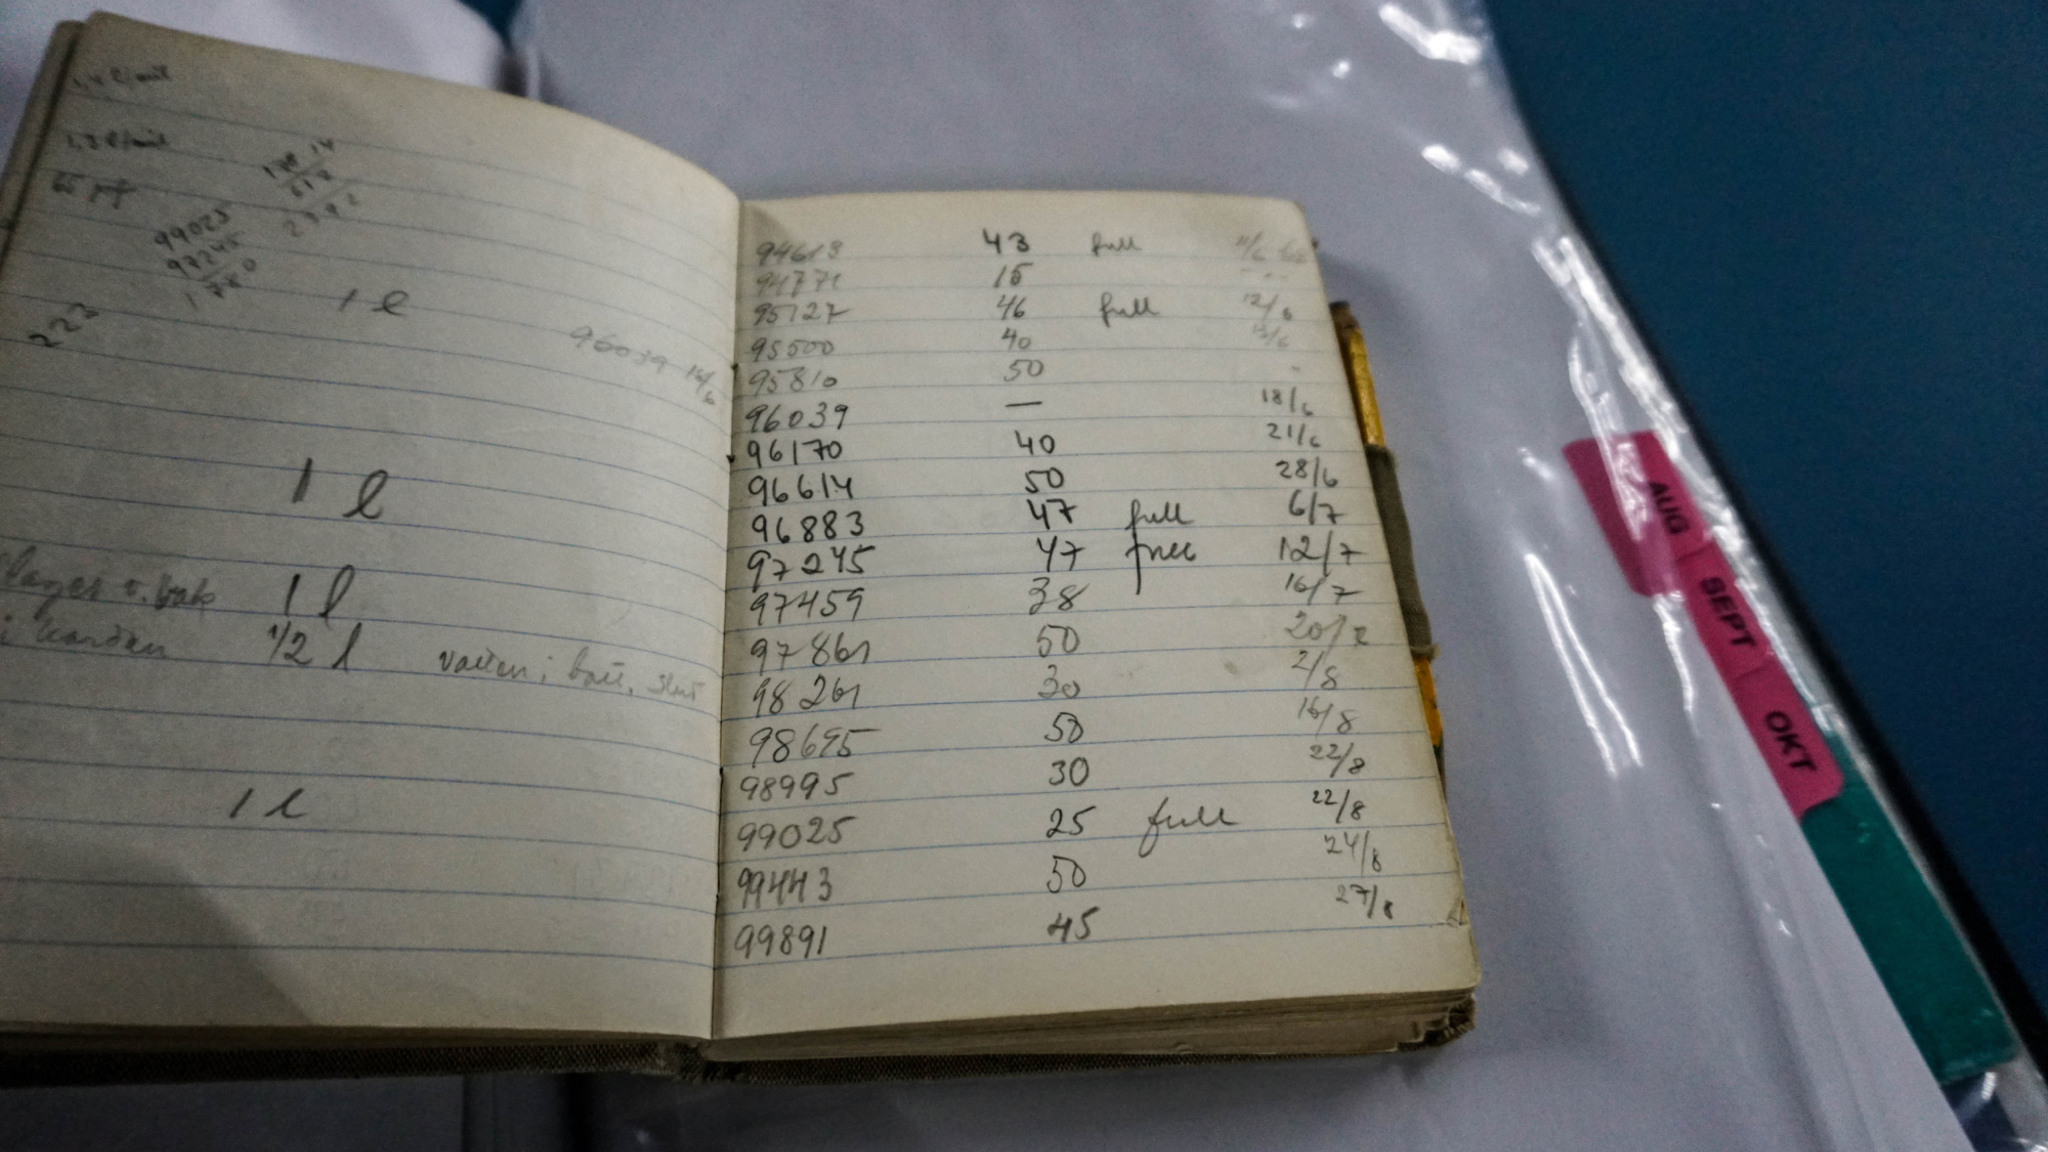 1,3 l/mil
99025
97245
1780
223
1 l
96039
1 l
1 l
1/2 l
1 l
94613 43 full 11/6
94771 15
95127 46 full 12/6
95500 40
95810 50
96039 — 18/6
96170 40 21/6
96614 50 28/6
96883 47 full 6/7
97245 47 full 12/7
97459 38 16/7
97861 50 20/7
98261 30 2/8
98695 50 16/8
98995 30 22/8
99025 25 full 22/8
99443 50 24/8
99891 45 27/8
AUG
SEPT
OKT